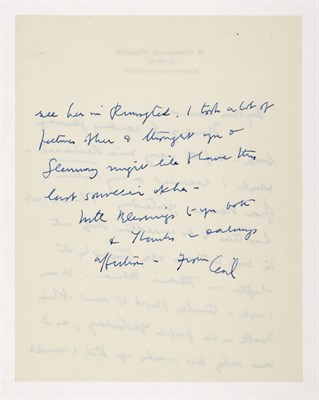 see her in Rungsted. I took a lot of
pictures of her & thought you &
Glenway might like to have this
last souvenir of her –
With blessings to you both
& Thanks &
affection – From Cecil